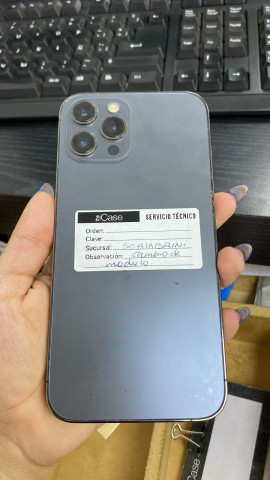 Case SERVICIO TÉCNICO
Orden:
Clave:
Sucursal: SCALABRINI
Observación: Cambio de
modulo.
Case